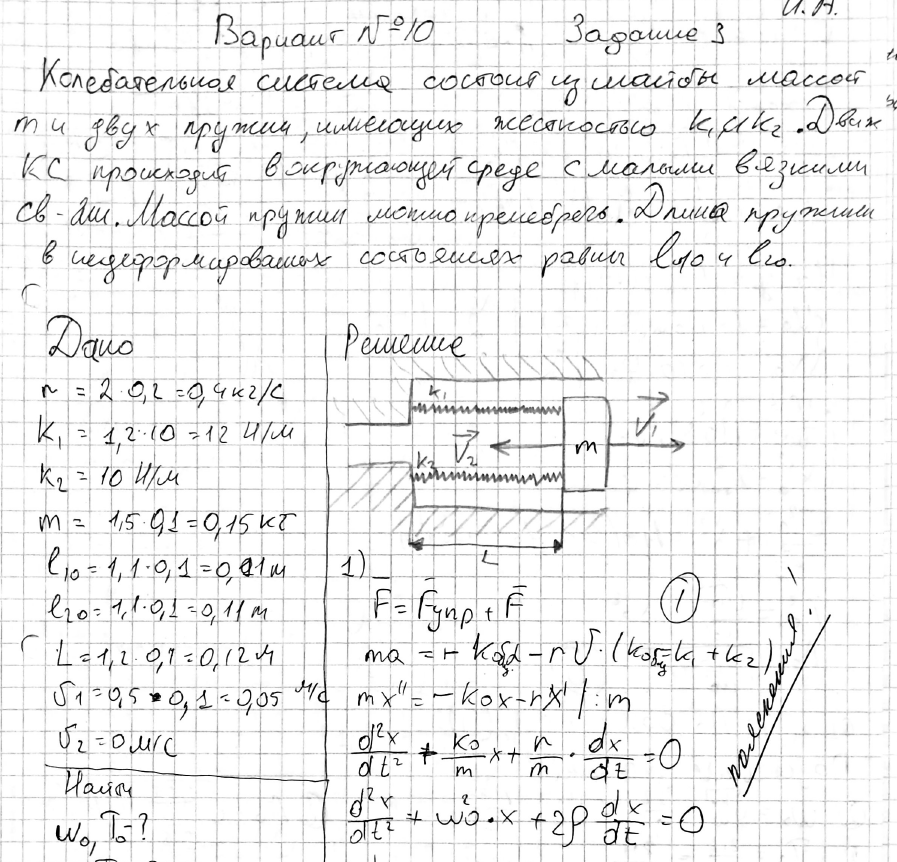 И.А.
Вариант №10 Задание 3
Колебательная система состоит из шайбы массой
m и двух пружин, имеющих жесткостью k₁ и k₂. Движ
КС происходит в окружающей среде с малыми вязкими
св-ами. Массой пружин можно пренебречь. Длина пружин
в недеформированых состояниях равны l₁₀ и l₂₀.
Дано
r = 2·0,2 = 0,4 кг/с
k₁ = 1,2·10 = 12 Н/м
k₂ = 10 Н/м
m = 1,5·0,1 = 0,15 кг
l₁₀ = 1,1·0,1 = 0,11 м
l₂₀ = 1,1·0,1 = 0,11 м
L = 1,2·0,1 = 0,12 м
υ1 = 0,5·0,1 = 0,05 м/с
υ₂ = 0 м/с
Найти
ω₀, T₀ - ?
Решение
k₁
k₂
V₂
m
V₁
L
1)
F = Fупр + F
①
ma = - kобщ - rυ·(kобщ = k₁ + k₂)
mx'' = -k₀x - rx' | : m
d²x/dt² + k₀/m x + r/m · dx/dt = 0
d²x/dt² + ω₀²·x + 2β dx/dt = 0
пояснения!